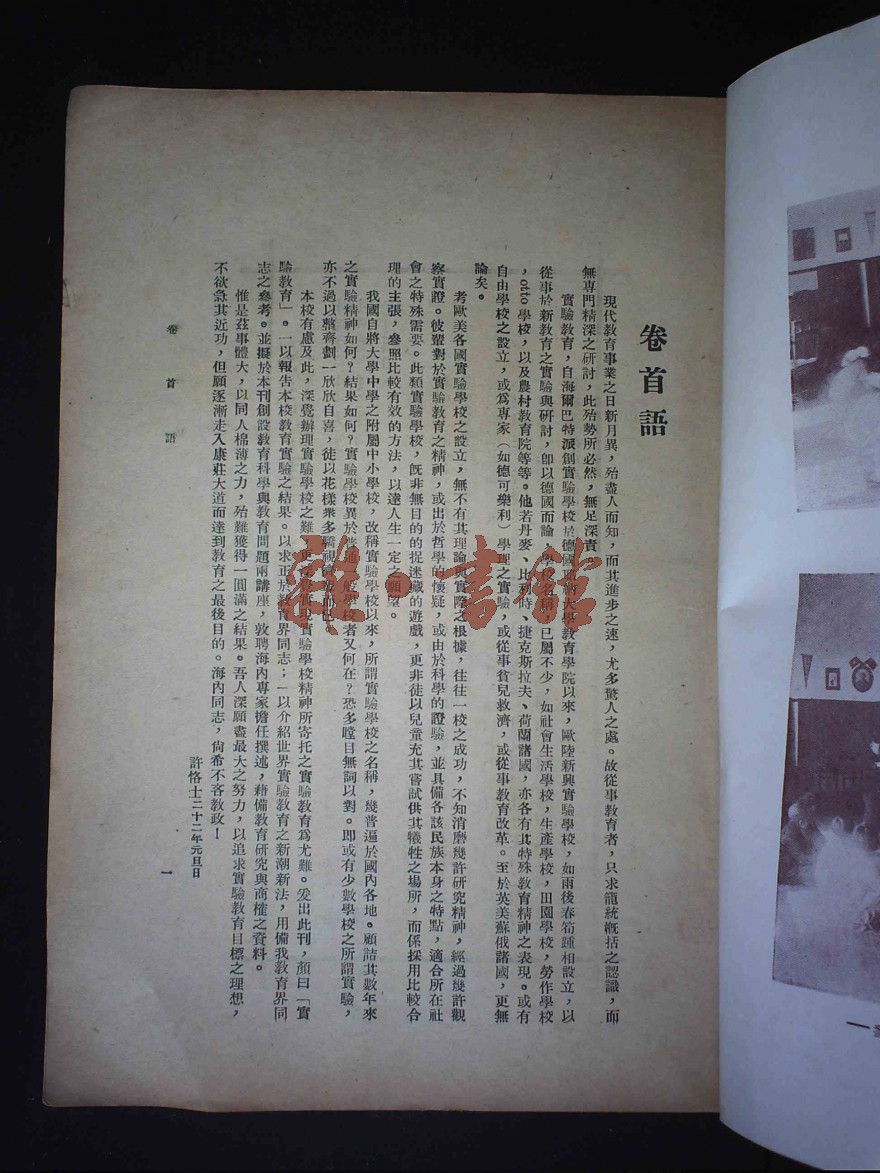 卷首語
現代教育事業之日新月異，殆盡人而知，而其進步之速，尤多驚人之處。故從事教育者，只求籠統概括之認識，而
無專門精深之研討，此殆勢所必然，無足深責。
實驗教育，自海爾巴特派創實驗學校於德國 大學教育學院以來，歐陸新興實驗學校，如雨後春筍踵相設立，以
從事於新教育之實驗與研討，卽以德國而論，學校名稱，已屬不少，如社會生活學校，生產學校，田園學校，勞作學校
，otto學校，以及農村教育院等等。他若丹麥、比利時、捷克斯拉夫、荷蘭諸國，亦各有其特殊教育精神之表現。或有
自由學校之設立，或爲專家（如德可樂利）學理之實驗，或從事貧兒救濟，或從事教育改革。至於英美蘇俄諸國，更無
論矣。
考歐美各國實驗學校之設立，無不有其理論與實際之根據，往往一校之成功，不知消磨幾許研究精神，經過幾許觀
察實證。彼輩對於實驗教育之精神，或出於哲學的懷疑，或由於科學的證驗，並具備各該民族本身之特點，適合所在社
會之特殊需要。此類實驗學校，旣非無目的的捉迷藏的遊戲，更非徒以兒童充其嘗試供其犧牲之場所，而係採用比較合
理的主張，參照比較有效的方法，以達人生一定之願望。
我國自將大學中學之附屬中小學校，改稱實驗學校以來，所謂實驗學校之名稱，幾普遍於國內各地。顧詰其數年來
之實驗精神如何？結果如何？實驗學校異於普通一般學校者又何在？恐多瞠目無詞以對。即或有少數學校之所謂實驗，
亦不過以整齊劃一欣欣自喜，徒以花樣衆多驕視
本校有慮及此，深覺辦理實驗學校之難， 實現實驗學校精神所寄托之實驗教育爲尤難。爰出此刊，顏曰「實
驗教育」。一以報告本校教育實驗之結果。以求正於教育界同志；一以介紹世界實驗教育之新潮新法，用備我教育界同
志之參考。並擬於本刊創設教育科學與教育問題兩講座，敦聘海內專家擔任撰述，藉備教育研究與商榷之資料。
惟是茲事體大，以同人棉薄之力，殆難獲得一圓滿之結果。吾人深願盡最大之努力，以追求實驗教育目標之理想，
不欲急其近功，但願逐漸走入康莊大道而達到教育之最後目的。海內同志，尙希不吝教政！
許恪士二十二年元旦日
卷首語
一